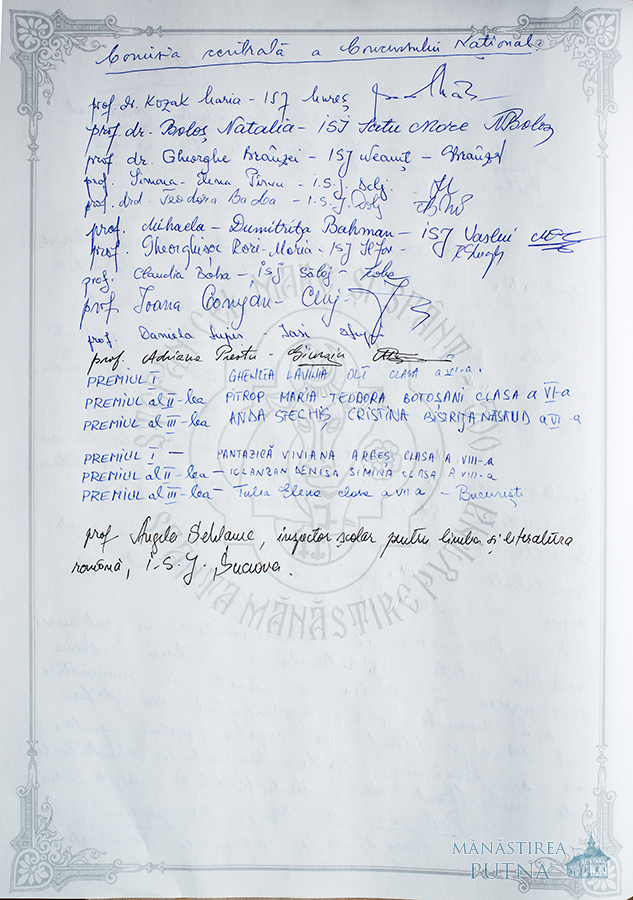 Comisia centrală a Concursului Național
prof. dr. Kozak Maria - ISJ Mureș
prof. dr. Boloș Natalia - ISJ Satu Mare NBoloș
prof. dr. Gheorghe Brânzei - ISJ Neamț - Brânzei
prof. Simona-Elena - I.S.J. Dolj
prof. drd. Teodora - I.S.J. Dolj
prof. Mihaela - Dumitrița Bahman - ISJ Vaslui
prof. Rori-Maria - ISJ Ilfov -
prof. Claudia - ISJ Sălaj -
prof. Ioana - Cluj -
prof. Daniela - Iași
prof. Adriana - Giurgiu
PREMIUL I GHENCEA LAVINIA OLT CLASA a VI-a.
PREMIUL al II-lea PITROP MARIA-TEODORA BOTOȘANI CLASA a VI-a
PREMIUL al III-lea ANDA CRISTINA BISTRIȚA NĂSĂUD a VI-a
PREMIUL I — PANTAZICĂ VIVIANA ARGEȘ CLASA A VIII-a
PREMIUL al II-lea - DENISA SIMINA CLASA A VIII-a
PREMIUL al III-lea - Tulea Elena clasa a VII a - București
prof Angela, inspector școlar pentru limba și literatura
română, I.S.J. Suceava.
SFÂNTA MĂNĂSTIRE PUTNA
MĂNĂSTIREA
PUTNA